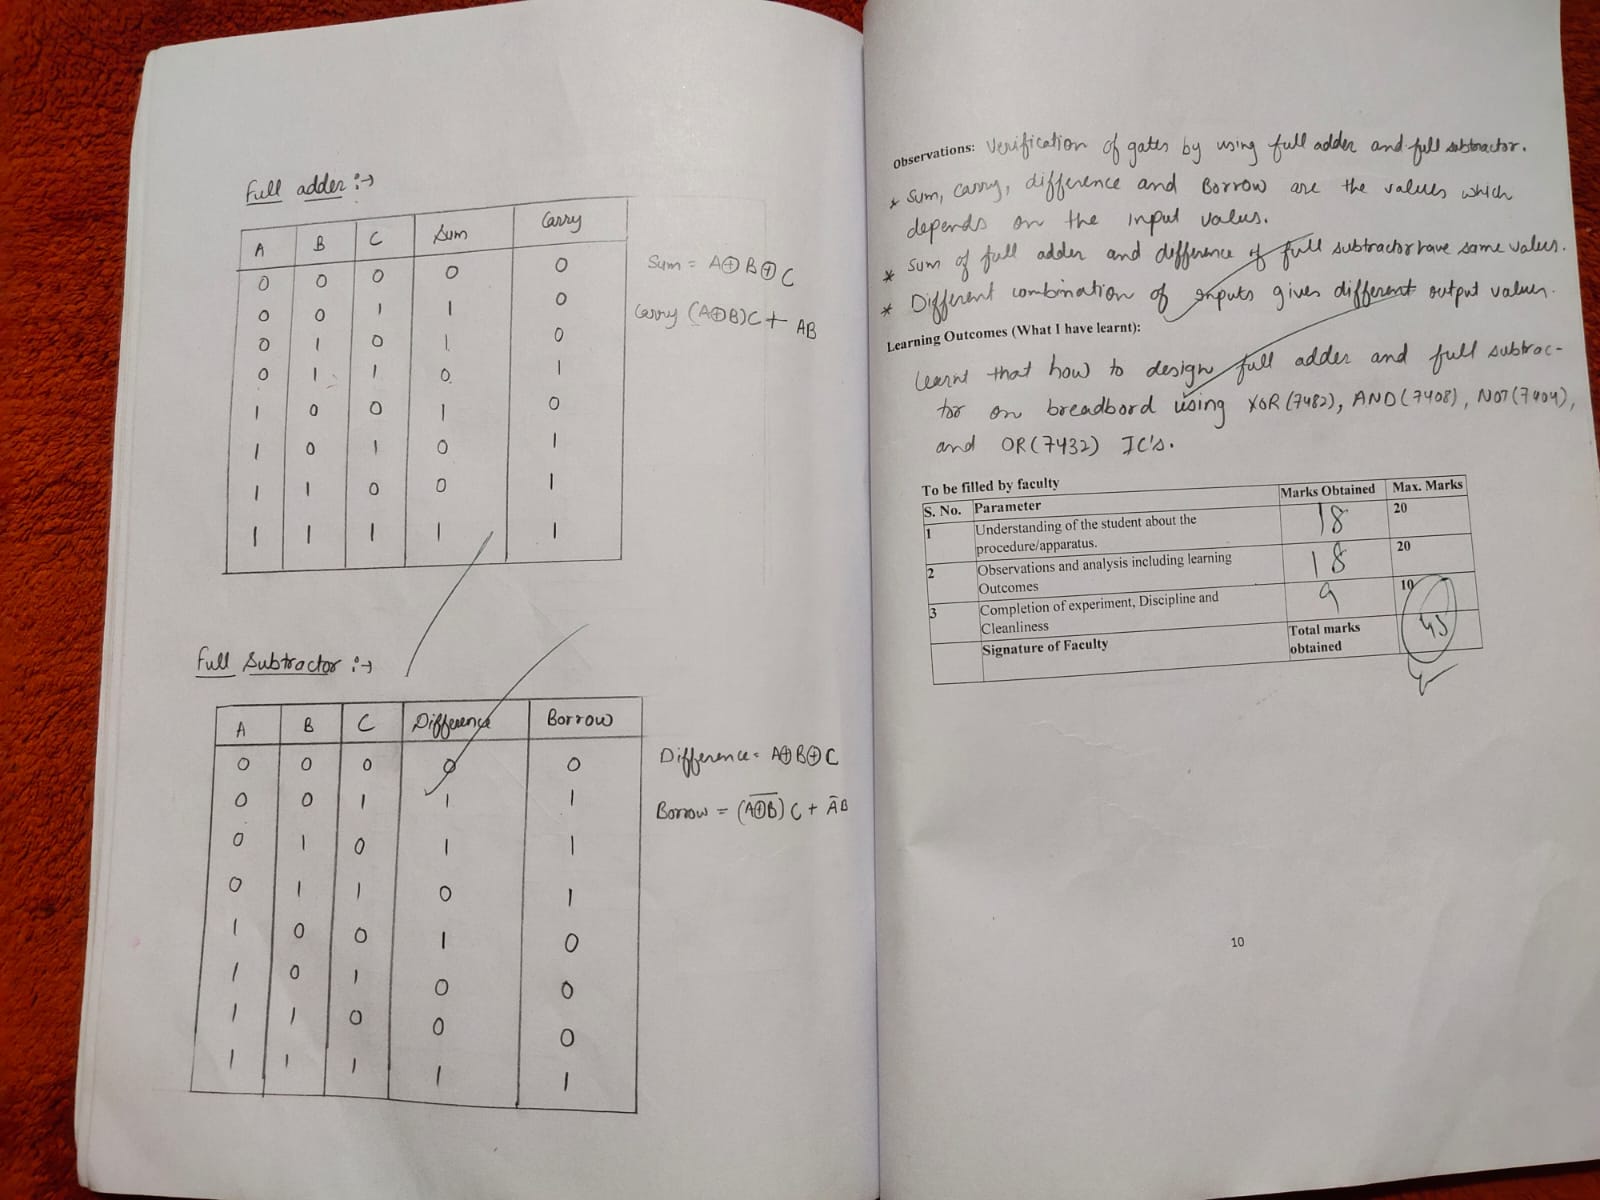 Full adder :→
A B C Sum Carry
0 0 0 0 0
0 0 1 1 0
0 1 0 1 0
0 1 1 0 1
1 0 0 1 0
1 0 1 0 1
1 1 0 0 1
1 1 1 1 1
Sum = A⊕B⊕C
Carry (A⊕B)C + AB
Full Subtractor :→
A B C Difference Borrow
0 0 0 0 0
0 0 1 1 1
0 1 0 1 1
0 1 1 0 1
1 0 0 1 0
1 0 1 0 0
1 1 0 0 0
1 1 1 1 1
Difference = A⊕B⊕C
Borrow = (A̅⊕̅B̅) C + A̅B
Observations: Verification of gates by using full adder and full subtractor.
* Sum, Carry, difference and Borrow are the values which
depends on the input values.
* Sum of full adder and difference of full subtractor have same values.
* Different combination of inputs gives different output values.
Learning Outcomes (What I have learnt):
learnt that how to design full adder and full subtrac-
tor on breadbord using XOR (7482), AND (7408), NOT (7404),
and OR (7432) IC's.
To be filled by faculty
S. No. Parameter Marks Obtained Max. Marks
1 Understanding of the student about the procedure/apparatus. 18 20
2 Observations and analysis including learning Outcomes 18 20
3 Completion of experiment, Discipline and Cleanliness 9 10
Signature of Faculty Total marks obtained 45
10